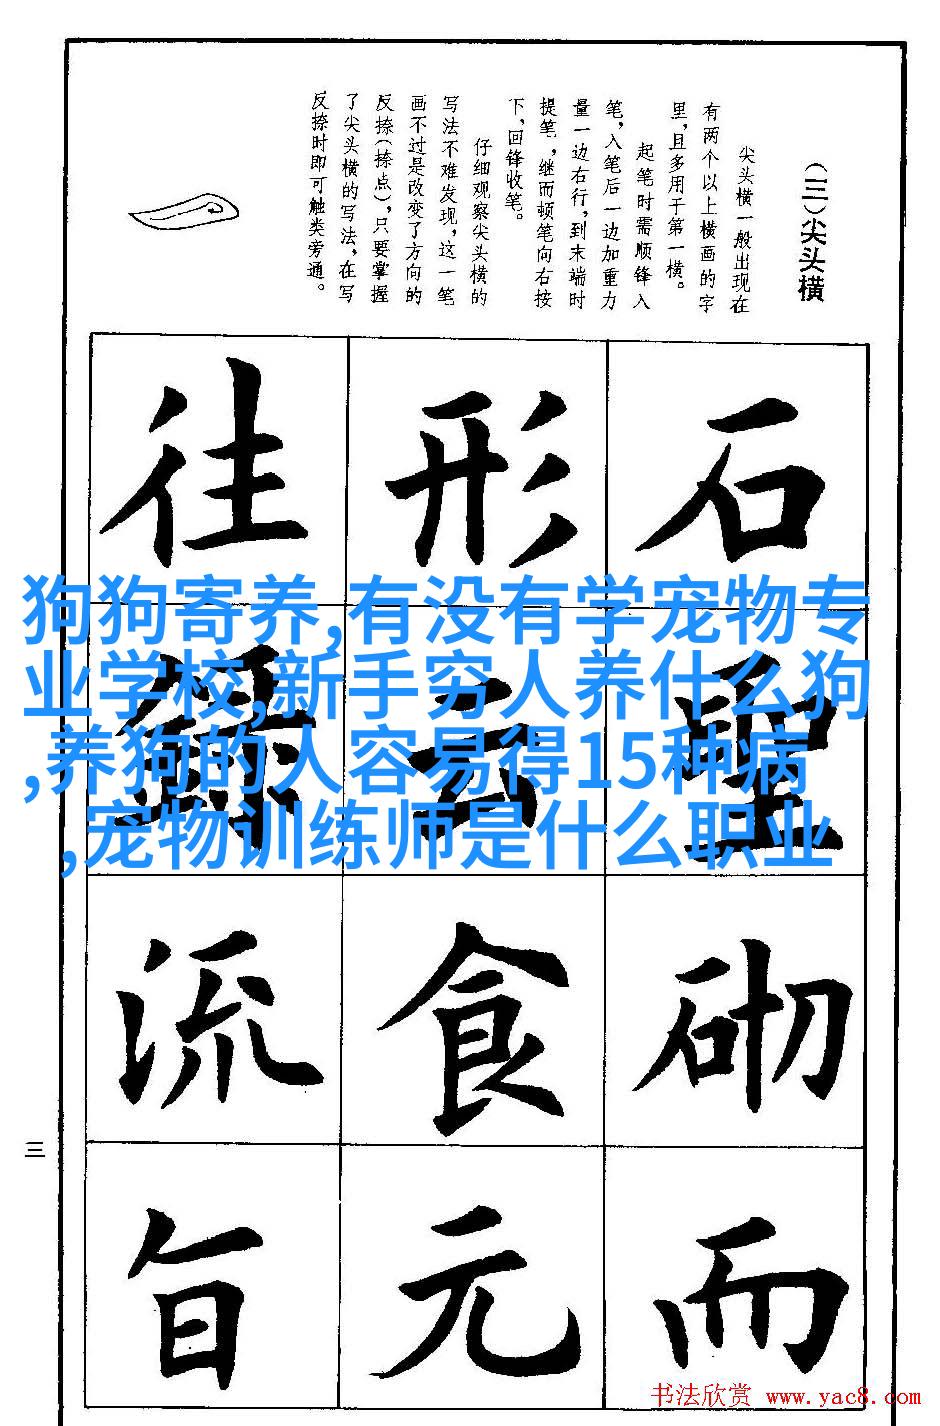 （三）尖头横
尖头横一般出现在
有两个以上横画的字
里，且多用于第一横。
起笔时需顺锋入
笔，入笔后一边加重力
量一边右行，到末端时
提笔，继而顿笔向右按
下，回锋收笔。
仔细观察尖头横的
写法不难发现，这一笔
画不过是改变了方向的
反捺（捺点），只要掌握
了尖头横的写法，在写
反捺时即可触类旁通。
石
形
往
狗狗寄养,有没有学宠物专
业学校,新手穷人养什么狗
,养狗的人容易得15种病
,宠物训练师是什么职业
云
砌
食
流
而
元
旨
三
书法欣赏 www.yac8.com